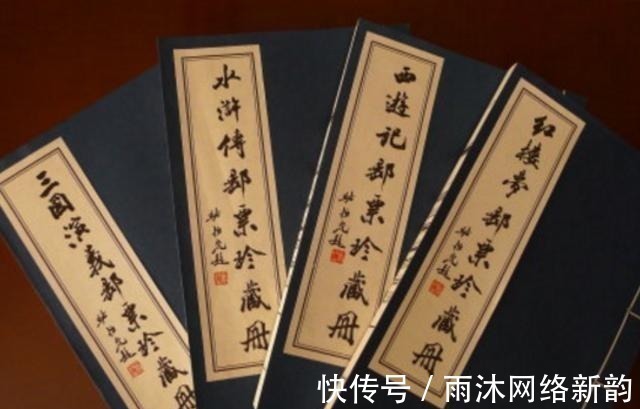 三国演義郵票珍藏册
水滸傳郵票珍藏册
西遊记郵票珍藏册
红楼梦郵票珍藏册
快传号 / 雨沐网络新韵